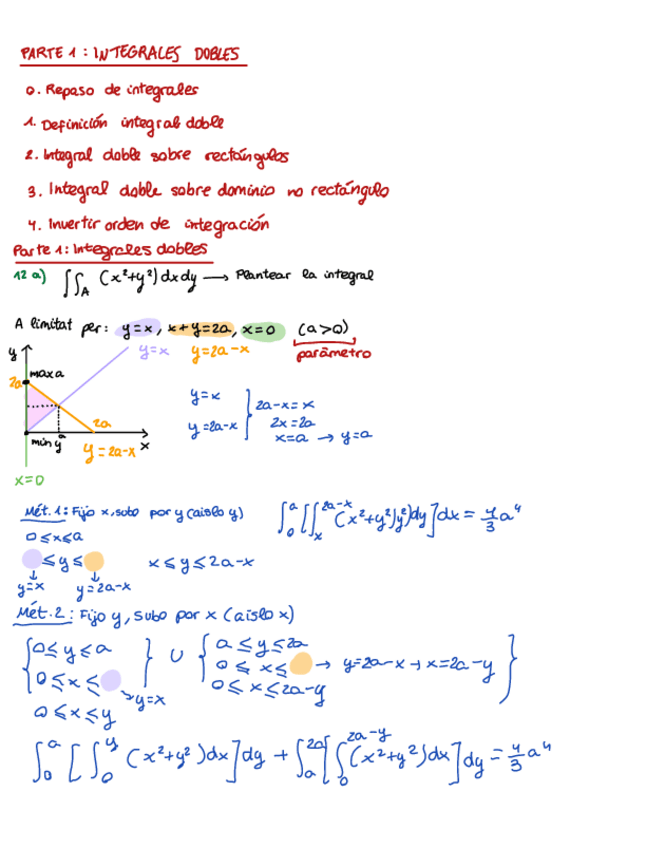 PARTE 1: INTEGRALES DOBLES
0. Repaso de integrales
1. Definición integral doble
2. Integral doble sobre rectángulos
3. Integral doble sobre dominio no rectángulo
4. Invertir orden de integración
Parte 1: Integrales dobles
12 a) ∬_A (x²+y²) dx dy → Plantear la integral
A limitat per: y=x, x+y=2a, x=0 (a>0)
y=x y=2a-x parámetro
y
max a
2a
2a
min y a y=2a-x x
x=0
y=x
y=2a-x
2a-x=x
2x=2a
x=a → y=a
Mét. 1: Fijo x, subo por y (aislo y) ∫_0^a [∫_x^{2a-x} (x²+y²)y²)dy] dx = 4/3 a⁴
0≤x≤a
≤y≤ x≤y≤2a-x
y=x y=2a-x
Mét. 2: Fijo y, subo por x (aislo x)
{0≤y≤a } ∪ { a≤y≤2a
0≤x≤ 0≤x≤ → y=2a-x → x=2a-y }
→ y=x 0≤x≤2a-y
0≤x≤y
∫_0^a [∫_0^y (x²+y²)dx] dy + ∫_a^{2a} [∫_0^{2a-y} (x²+y²)dx] dy = 4/3 a⁴